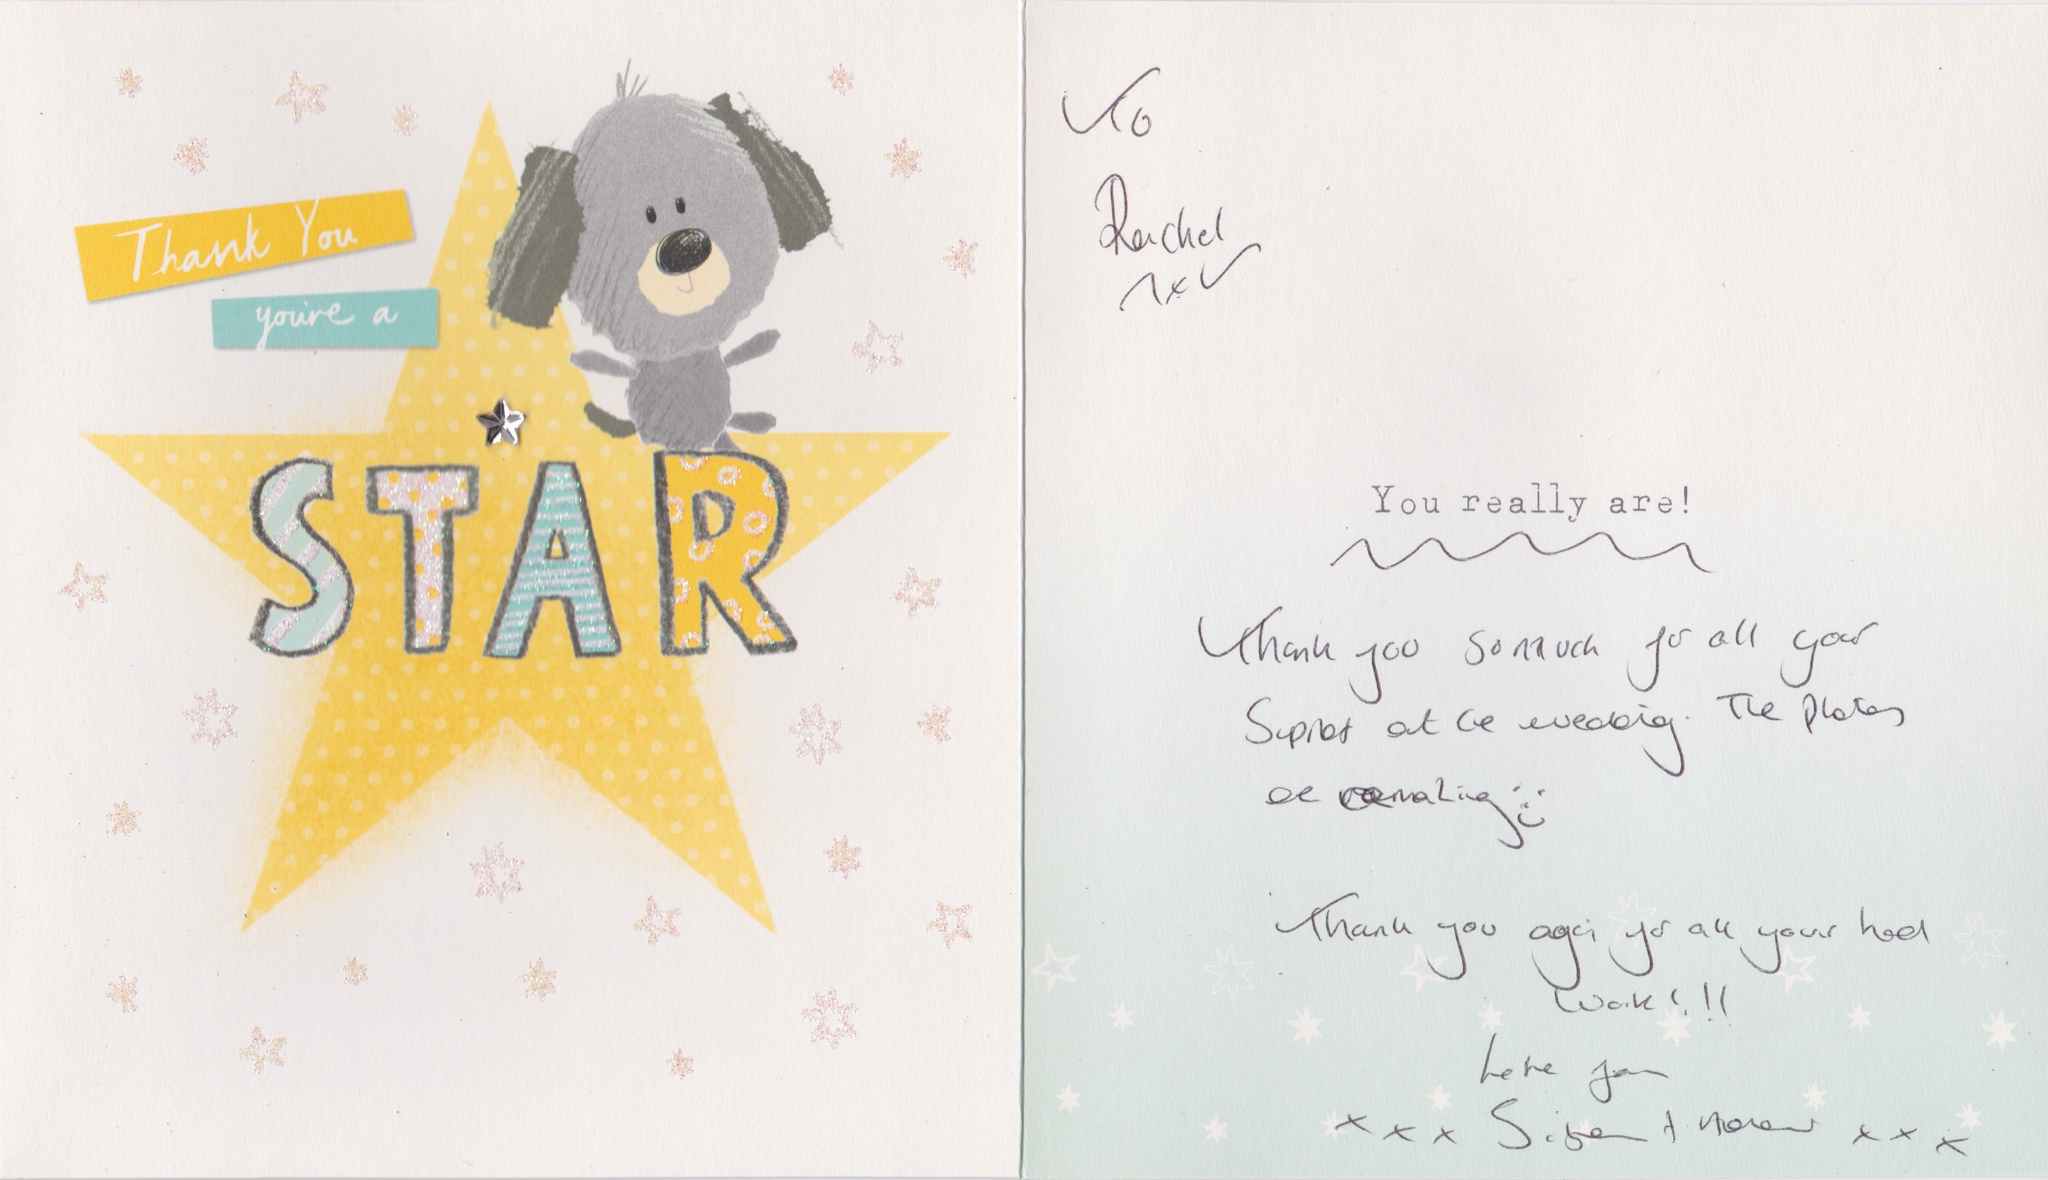 Thank You
you're a
STAR
To
Rachel
You really are!
Thank you so much for all your
Support at the wedding. The photos
are amazing
Thank you again for all your hard
work!!!
Love from
xxx Simon + xxx